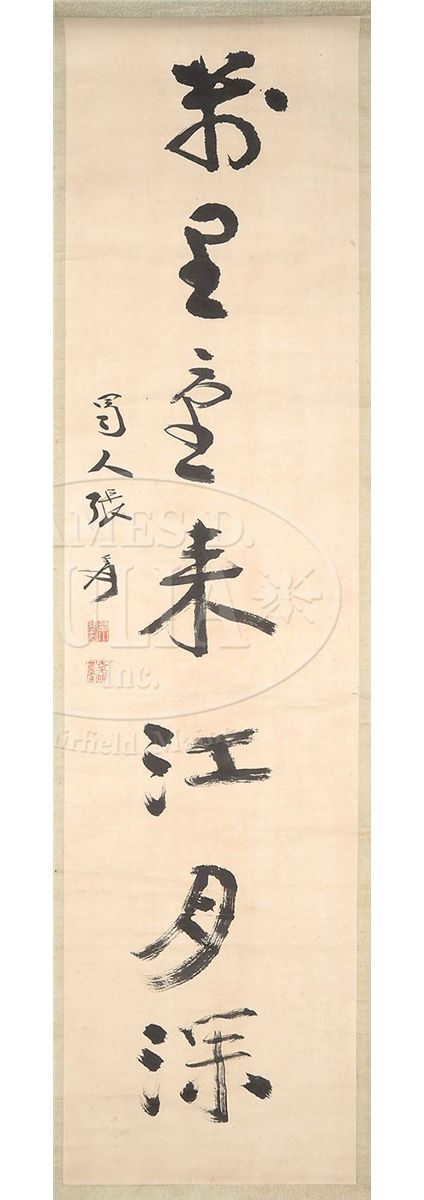 萬里來江月深
蜀人張爰
JAMES D.
JULIA
Inc.
Fairfield, Maine